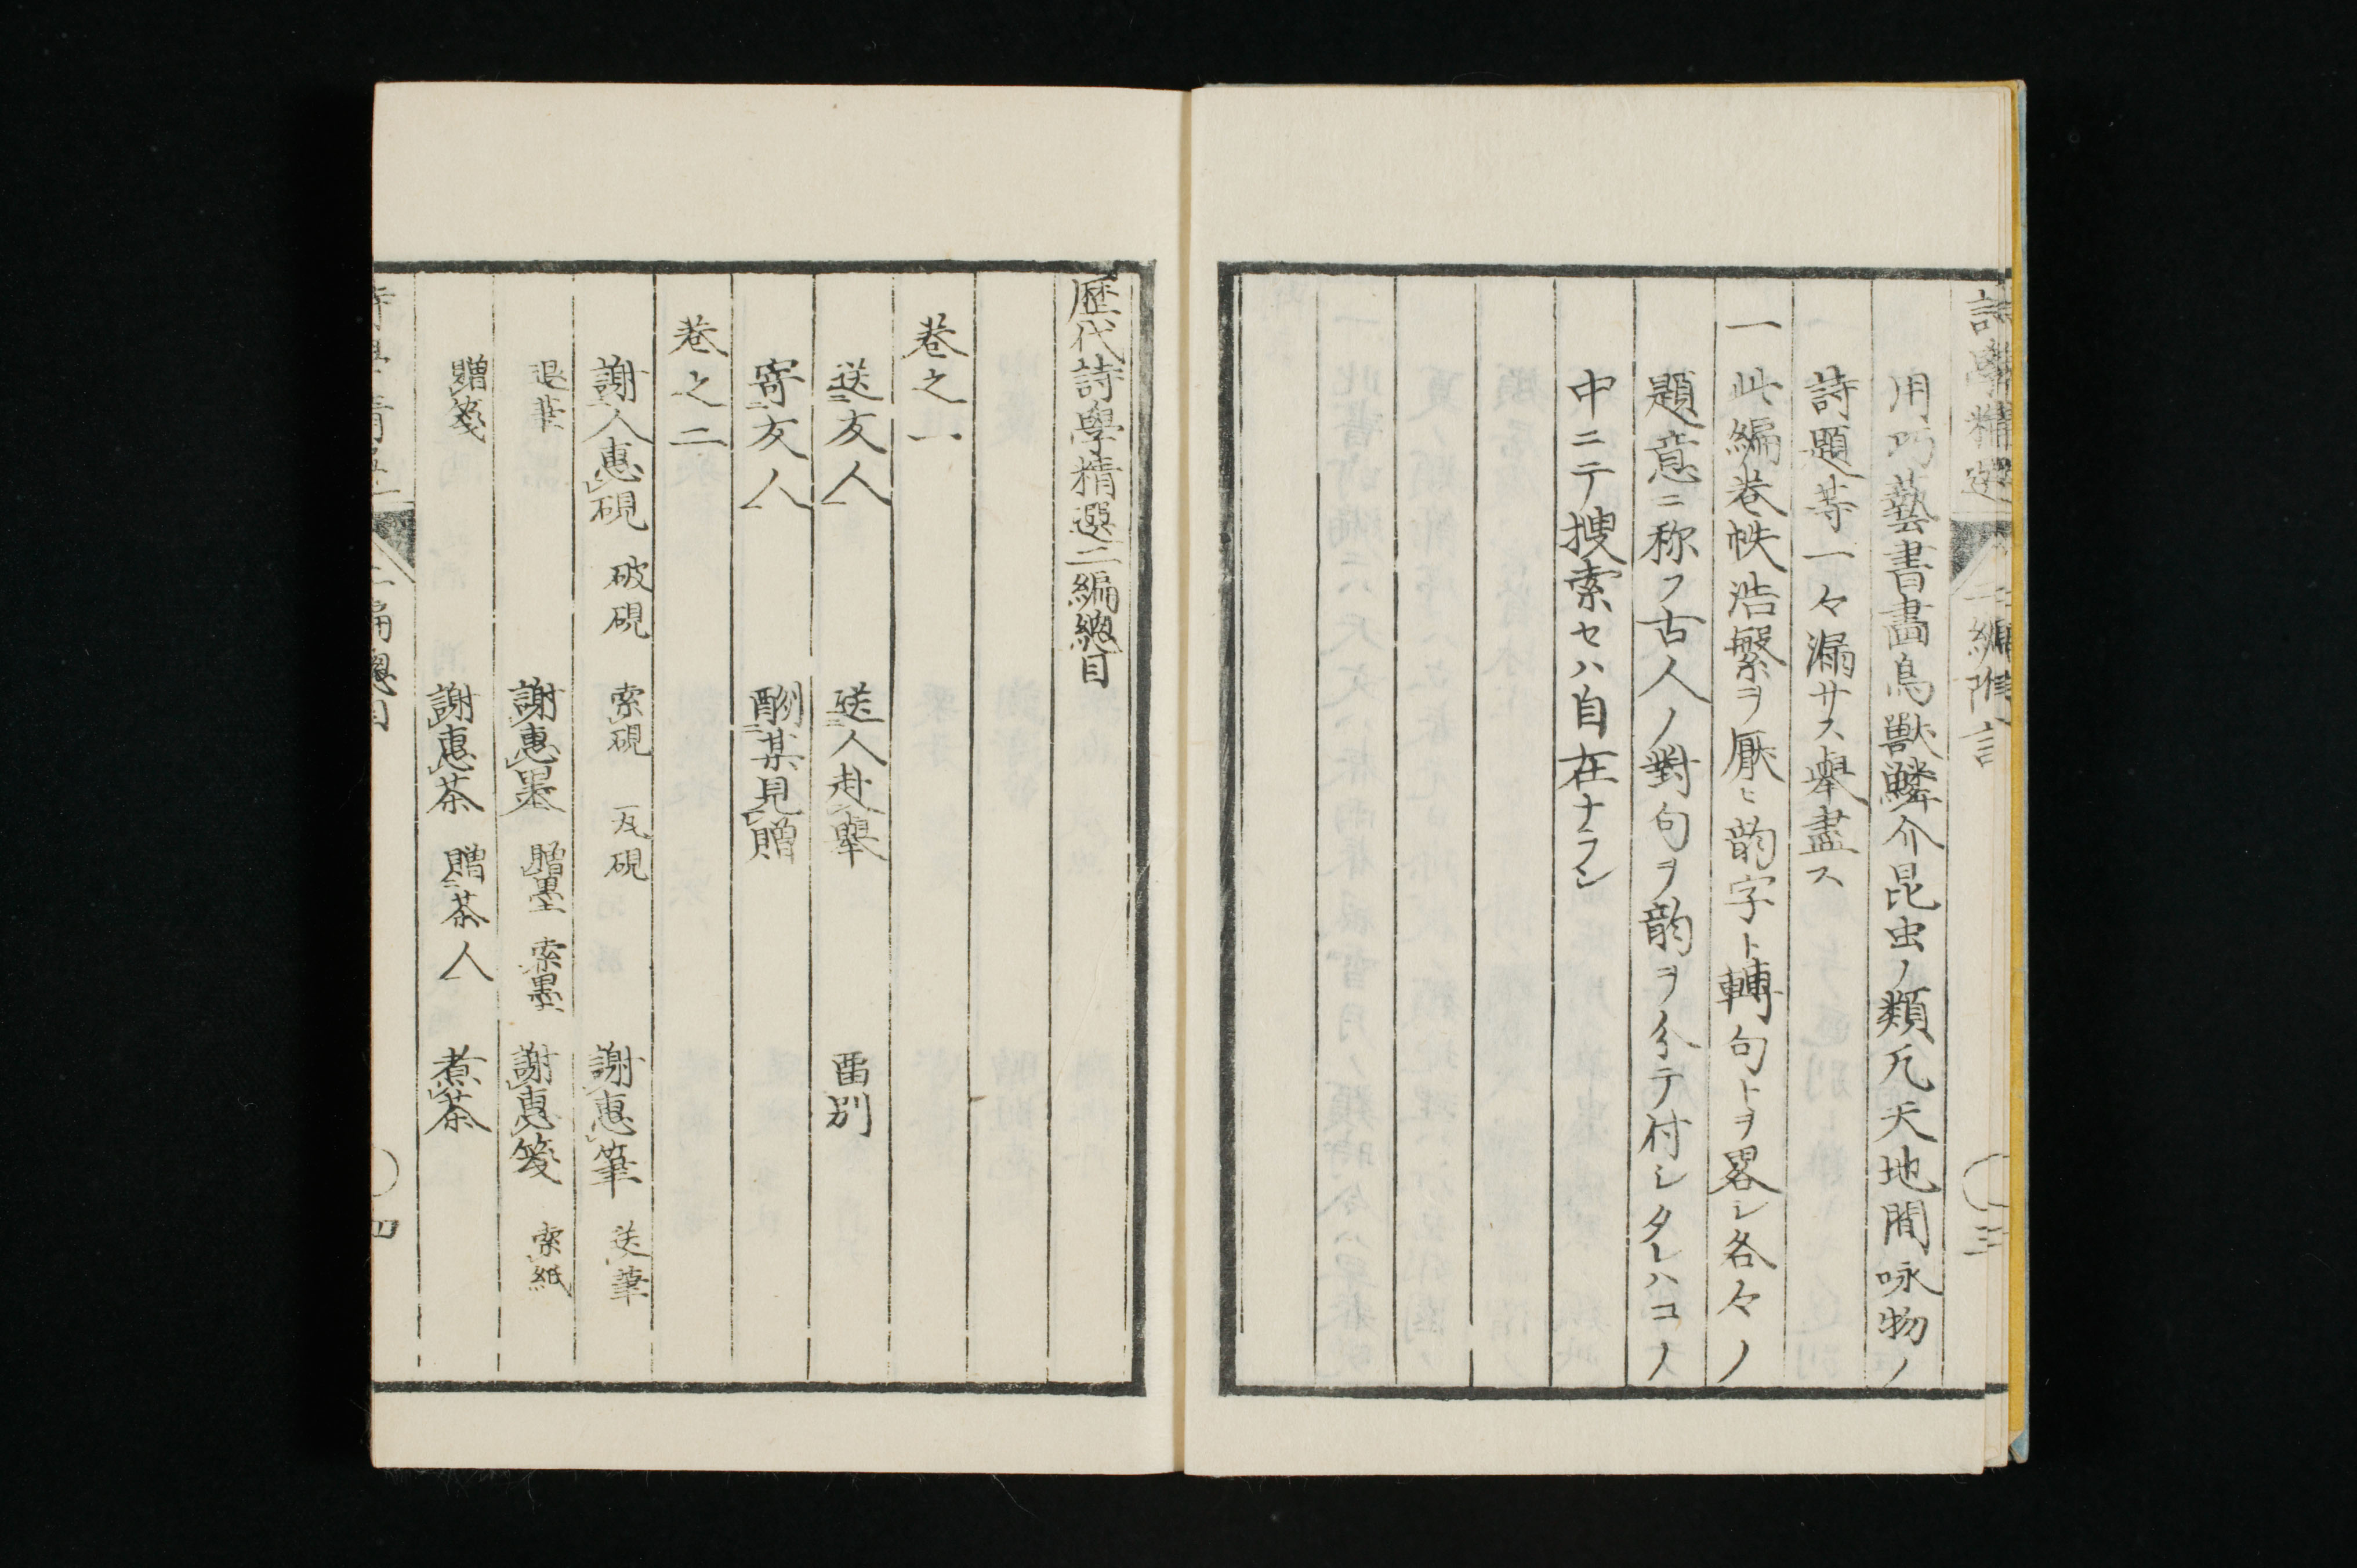 詩學精選 二編附言 三
用巧藝書畵鳥獸鱗介昆虫ノ類凡天地間咏物ノ
詩題等一々漏サス擧盡ス
一此編卷帙浩繁ヲ厭ヒ韵字ト轉句トヲ畧シ各々ノ
題意ニ称フ古人ノ對句ヲ韵ヲ分テ付シタレハコノ
中ニテ搜索セハ自在ナラン
歷代詩學精選二編緫目
卷之一
送二友人 送二人赴擧 畱別
寄二友人 酬二某見贈
卷之二
謝人惠硯 破硯 索硯 瓦硯 謝惠筆 送筆
退筆 謝惠墨 贈墨 索墨 謝惠箋 索紙
贈箋 謝惠茶 贈二茶人 煮茶
二編緫目 四